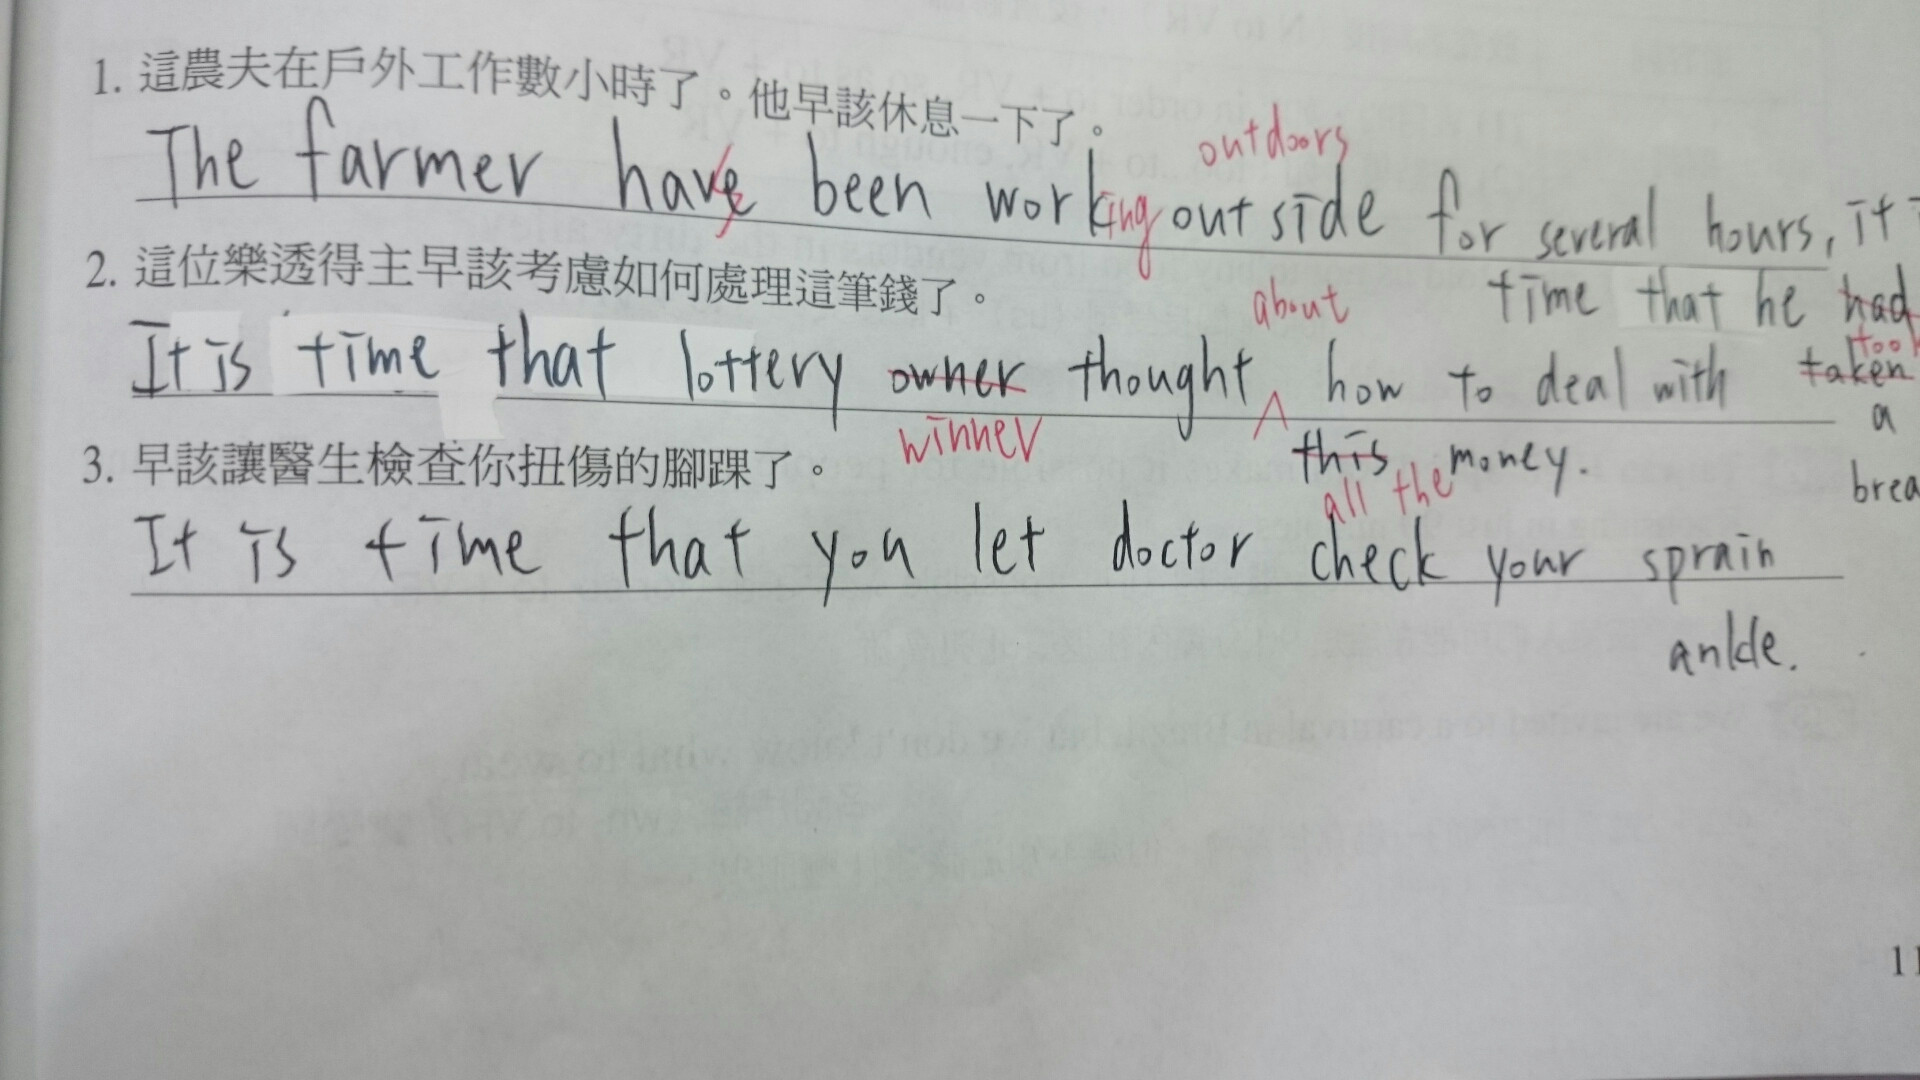 1. 這農夫在戶外工作數小時了。他早該休息一下了。
outdoors
The farmer have been working outside for several hours, it
2. 這位樂透得主早該考慮如何處理這筆錢了。
time that he had
about
took
It is time that lottery owner thought ^ how to deal with taken
winner
a
this money.
all the
3. 早該讓醫生檢查你扭傷的腳踝了。
It is time that you let doctor check your sprain
ankle.